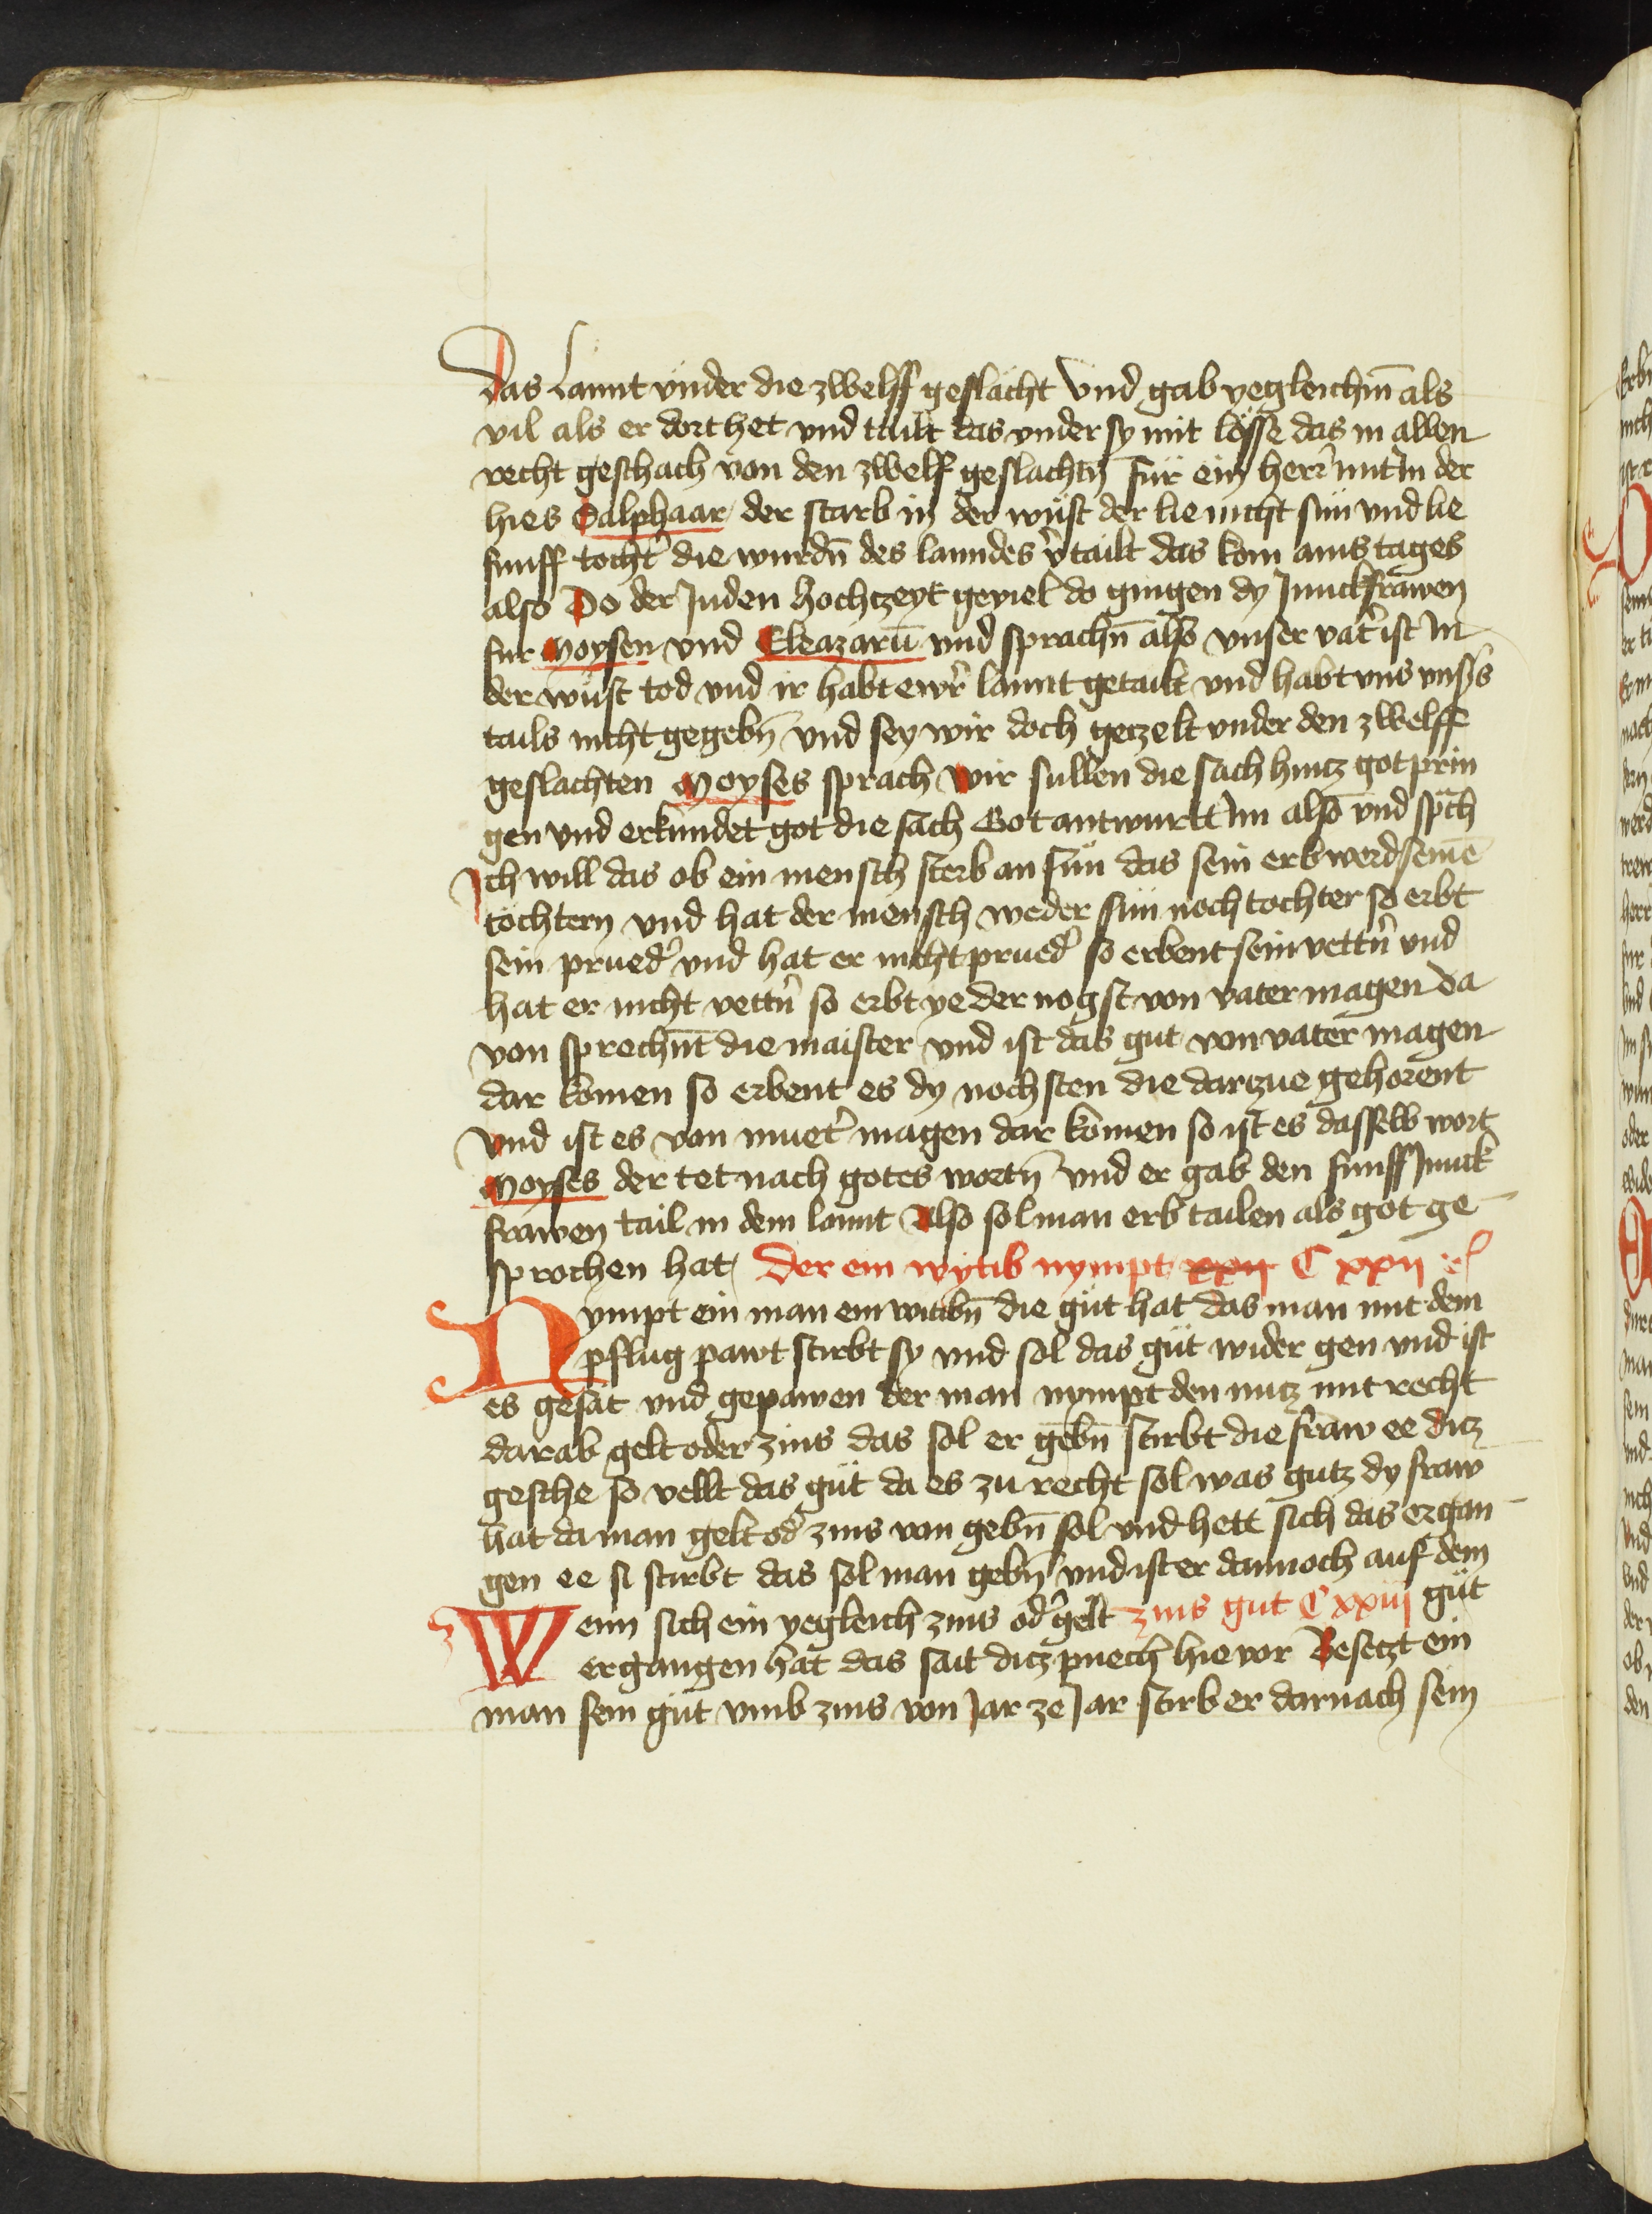 Das Lannt vnder die zwelff geslächt Vnd gab yegleichm̄ als
vil als er dort het vnd tailt das vnder sy mit lösse das in allen
recht geschach von den zwelf geslachtn̄ Für ein herr mit In der
hies Salphaar der starb in der wüst der lie nicht sün vnd lie
funff tocht͛ die wurdn̄ des lanndes v͛tailt das kom ains tages
also Do der Juden hochzeyt geviel do gingen dy Junckfrawen
fur Moysen vnd Eleazarū vnd sprachn̄ also vnser vat͛ ist In
der wüst tod vnd ir habt ewr͛ lannt getailt vnd habt vns vns͛s
tails nicht gegebn̄ vnd sey wir doch geczelt vnder den zwelff
geslachten Moyses sprach wir sullen die sach hintz got prin
gen vnd erkundet got die sach Got antwurtt Im also vnd sp͛ch
Ich will das ob ein mensch sterb an sün das sein erb werd seine͛
töchtern vnd hat der mensch weder sün noch tochter so erbt
sein prued͛ vnd hat er nicht prued͛ so erbent sein vettn͛ vnd
hat er nicht vettn͛ so erbt ye der nogst von vater magen da
von sprechn̄t die maister vnd ist das gut von vater magen
dar komen so erbent es dy nochsten die darzue gehorent
Vnd ist es von muet͛ magen dar komen so ist es dasselb wort
Moyses der tet nach gotes wortn̄ vnd er gab den funff Junck
frawen tail in dem lannt Also sol man erb tailen als got ge
sprochen hat Der ein wytib nympt xxij C xxij
Nympt ein man ein witibn̄ die güt hat das man mit dem
pflug pawt stirbt sy vnd sol das güt wider gen vnd ist
es gesät vnd gepawen der man nympt den nutz mit recht
darab gelt oder zins das sol er gebn̄ stirbt die fraw ee ditz
gesche so vellt das güt da es zu recht sol was gutz dy fraw
hat da man gelt od͛ zins von gebn̄ sol vnd hett sich das ergan
gen ee si stirbt das sol man gebn̄ vnd ist er dannoch auf dem
güt
Wenn sich ein yegleich zins od͛ gelt zins gut C xxiij
ergangen hat das sait ditz puech hie vor Besetzt ein
man sein güt vmb zins von Jar ze Jar stirb er darnach sein